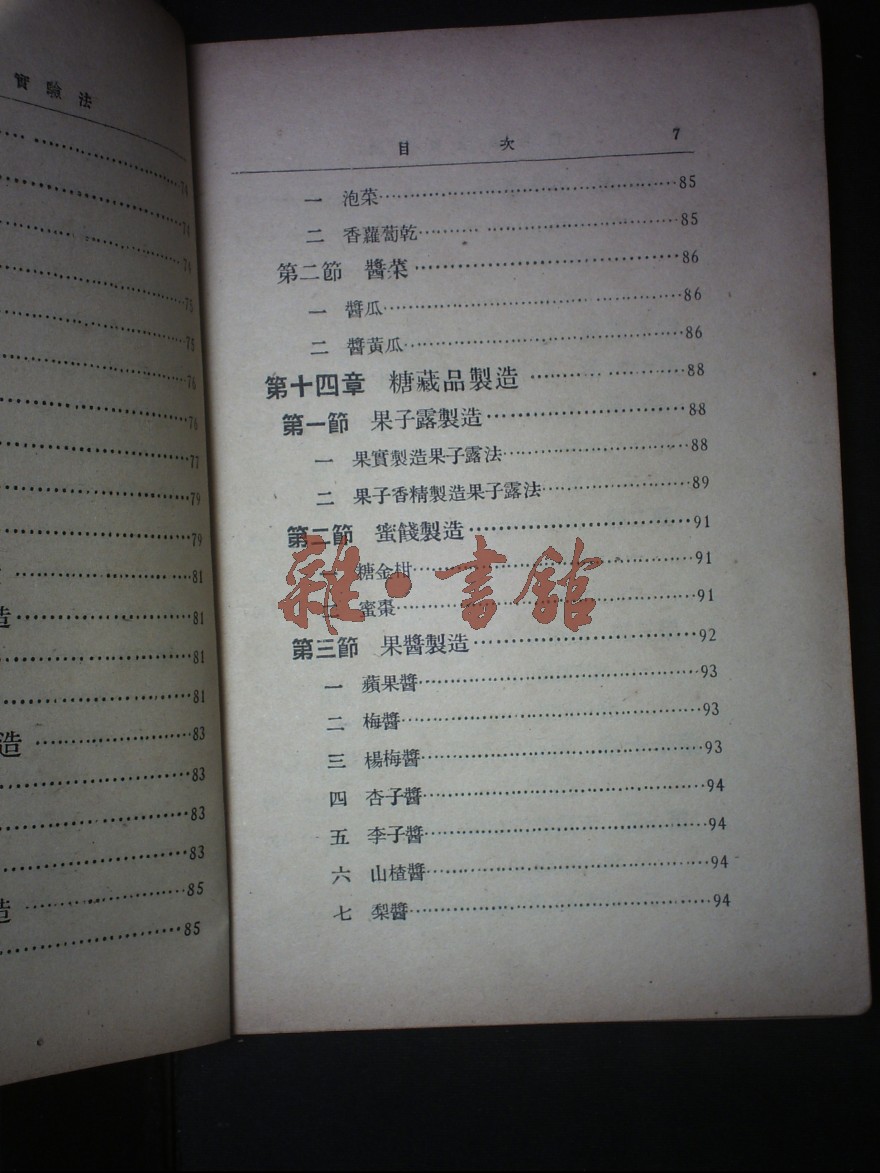 實驗法
74
74
74
75
75
76
76
77
79
79
81
造 81
81
81
造 83
83
83
83
造 85
85
目次 7
一 泡菜 85
二 香蘿蔔乾 85
第二節 醬菜 86
一 醬瓜 86
二 醬黃瓜 86
第十四章 糖藏品製造 88
第一節 果子露製造 88
一 果實製造果子露法 88
二 果子香精製造果子露法 89
第二節 蜜餞製造 91
一 糖金柑 91
二 蜜棗 91
第三節 果醬製造 92
一 蘋果醬 93
二 梅醬 93
三 楊梅醬 93
四 杏子醬 94
五 李子醬 94
六 山楂醬 94
七 梨醬 94
雜·書館